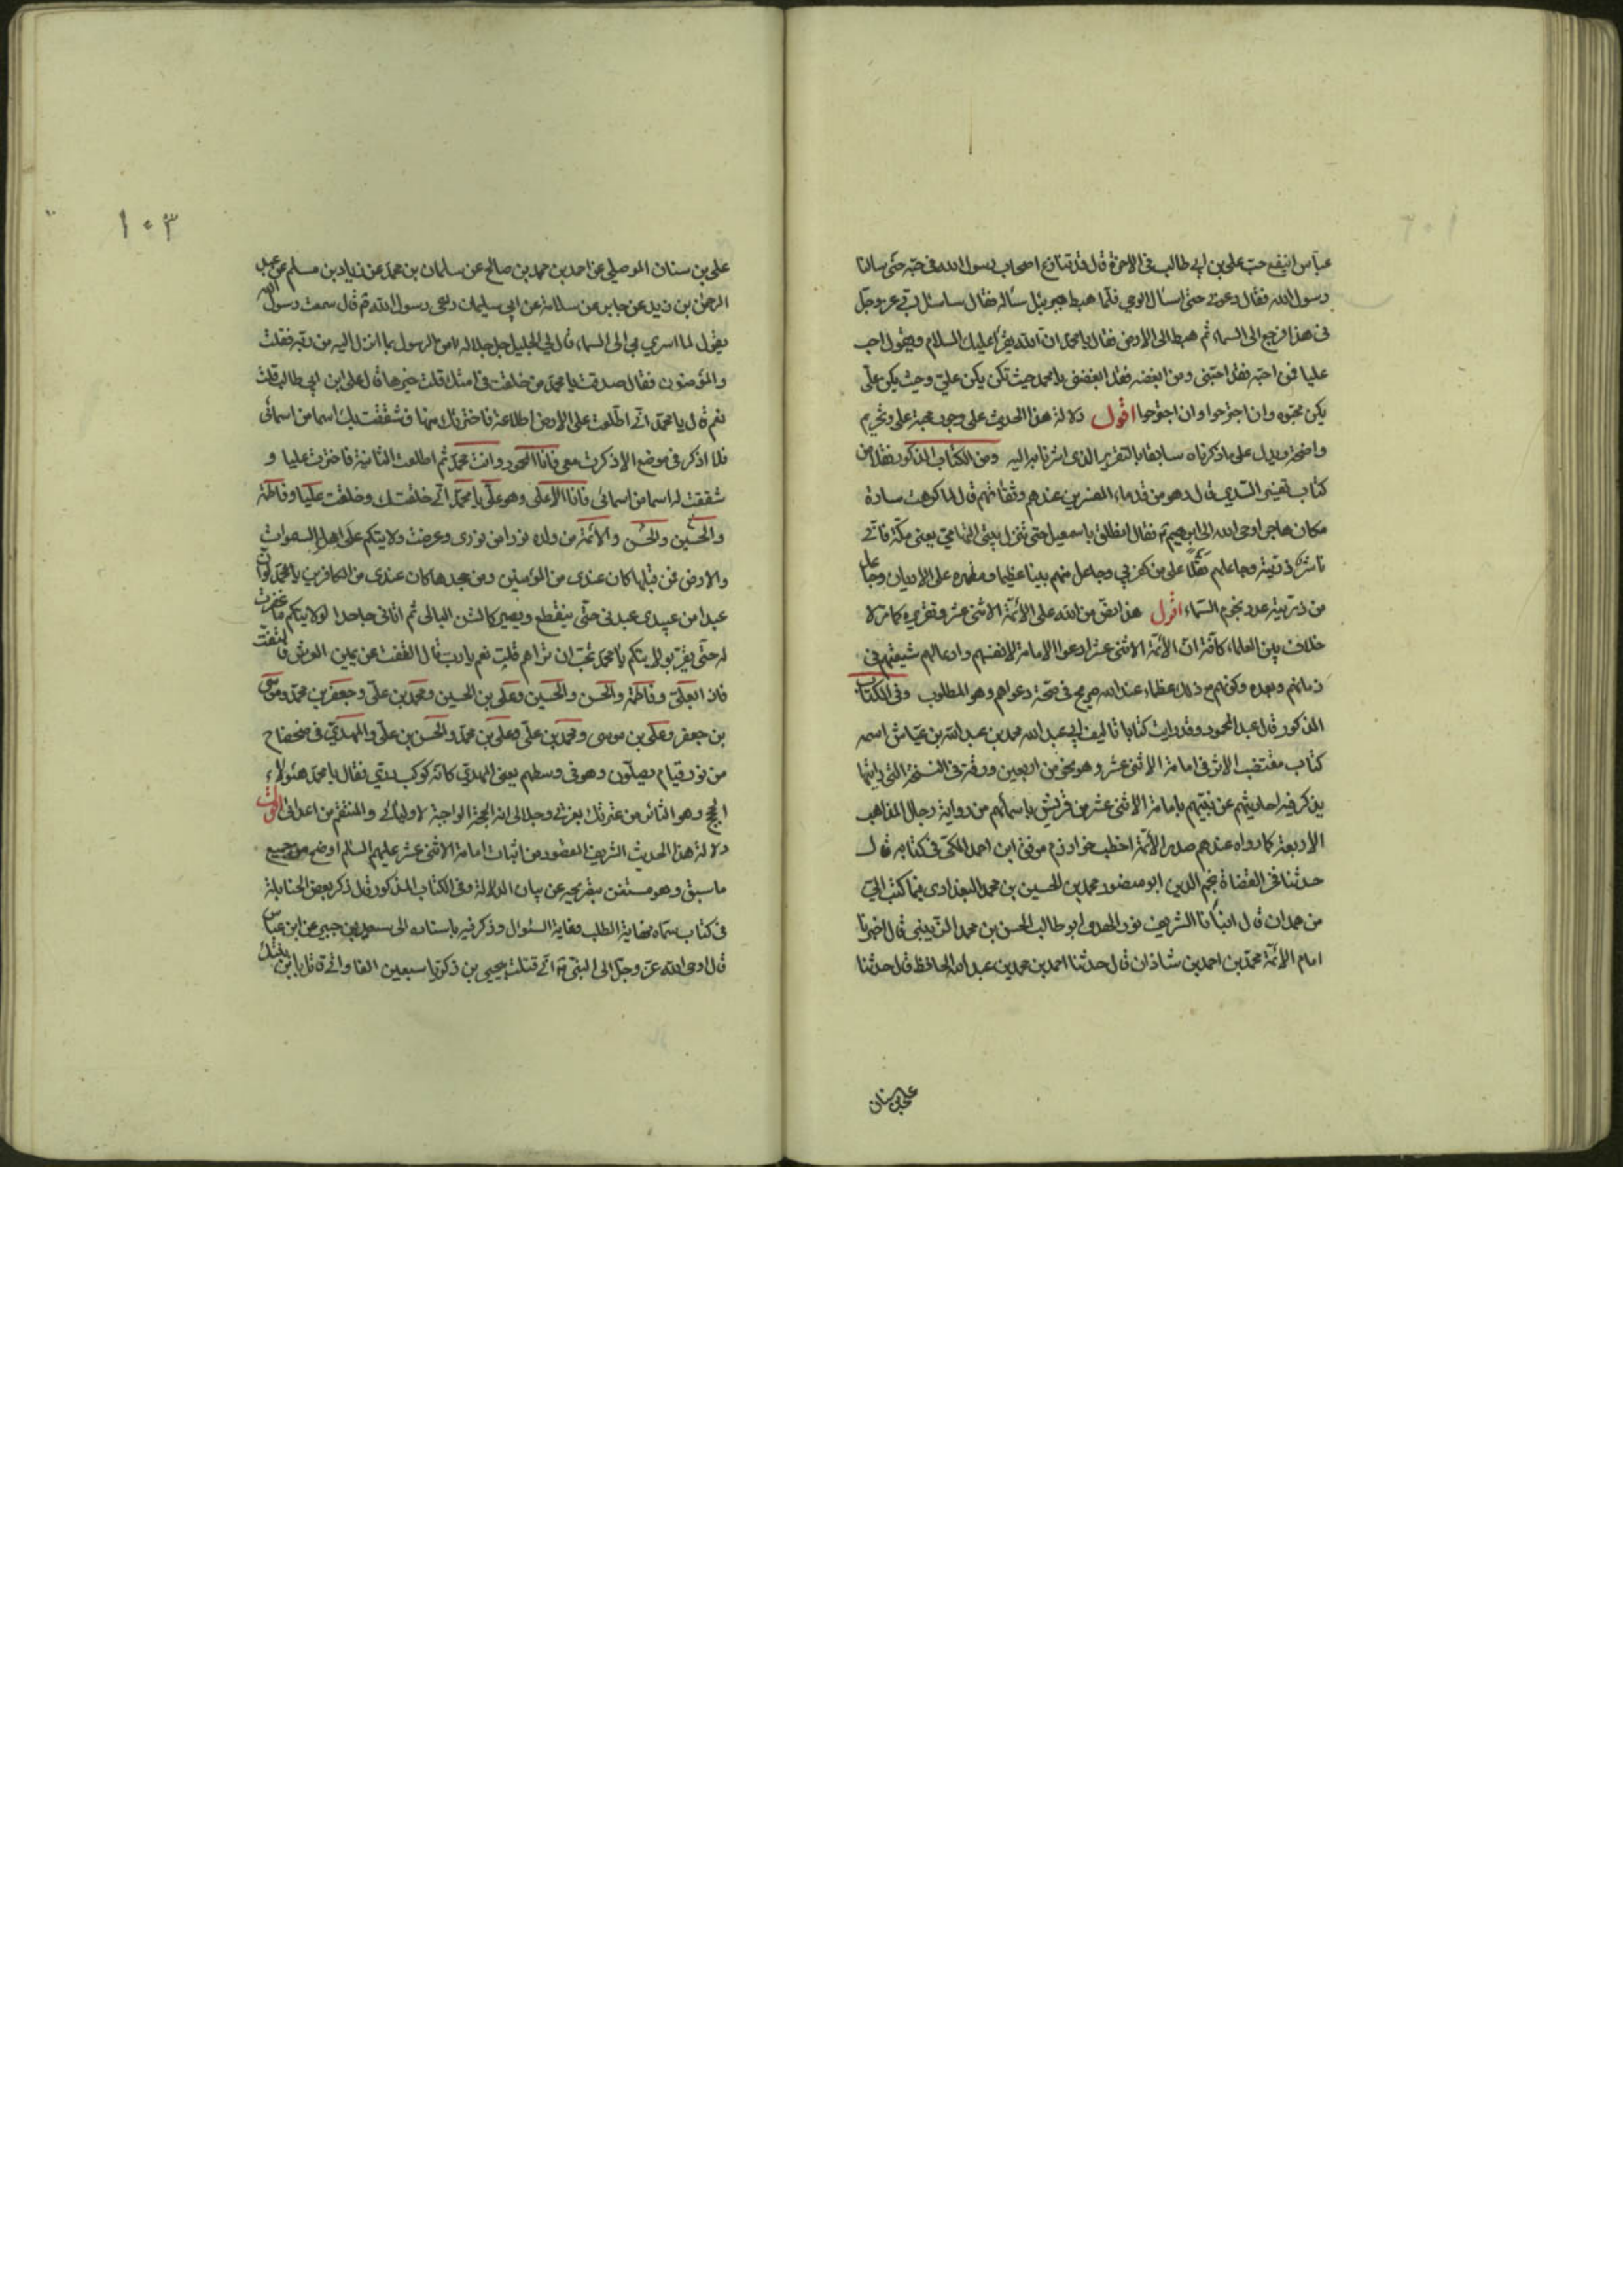 عباس اينفع حب علي بن ابي طالب في الاخرة قال قد تنازع اصحاب رسول الله في حبه حتى سالنا
رسول الله فقال دعوني حتى اسال الوحي فلما هبط جبرئيل ساله فقال ساسئل ربي عز وجل
في هذا فرجع الى السماء ثم هبط الى الارض فقال يا محمد ان الله يقرأ عليك السلام ويقول احب
عليا فمن احبه فقد احبني ومن ابغضه فقد ابغضني يا محمد حيث تكن يكن علي وحيث يكن علي
يكن محبوه وان اجترحوا وان اجترحوا اقول دلالة هذا الحديث على وجوب محبة علي وتحريم
واضحة ويدل على ما ذكرناه سابقا بالتقرير الذي اشرنا اليه ومن الكتاب المذكور نقلا من
كتاب تفسير السدي قال وهو من قدماء المفسرين عندهم وثقاتهم قال لما كرهت سارة
مكان هاجر اوحى الله الى ابرهيم فقال انطلق باسمعيل حتى تنزل بيتي التهامي يعني مكة فاني
ناشر ذريته وجاعلهم ثقلا على من كفر بي وجاعل منهم نبيا عظيما ومظهره على الاديان وجاعل
من ذريته عدد نجوم السماء اقول هذا نص من الله على الأئمة الاثنى عشر وتقريره كما مر لا
خلاف بين العلماء كافة ان الأئمة الاثنى عشر ادعوا الامامة لانفسهم وادعا لهم شيعتهم في
زمانهم وبعده وكونهم مع ذلك عظماء عند الله صريح في صحة دعواهم وهو المطلوب وفي الكتاب
المذكور قال عبد المحمود وقد رايت كتابا تاليف ابي عبد الله محمد بن عبد الله بن عياش اسمه
كتاب مقتضب الاثر في امامة الاثنى عشر وهو نحو من اربعين ورقة في النسخة التي رايتها
يذكر فيه احاديثهم عن نبيهم بامامة الاثنى عشر من قريش باسمائهم من رواية رجال المذاهب
الاربعة كما رواه عندهم صدر الأئمة اخطب خوارزم موفق ابن احمد المكي في كتابه قال
حدثنا فخر القضاة نجم الدين ابو منصور محمد بن الحسين بن محمد البغدادي فيما كتب الي
من همدان قال انبأنا الشريف نور الهدى ابو طالب الحسن بن محمد الزينبي قال اخبرنا
امام الأئمة محمد بن احمد بن شاذان قال حدثنا احمد بن محمد بن عبد الله الحافظ قال حدثنا
علي بن سنان
١٠٣
علي بن سنان الموصلي عن احمد بن محمد بن صالح عن سلمان بن محمد عن زياد بن مسلم عن عبد
الرحمن بن زيد عن جابر عن سلامة عن ابي سليمان راعي رسول الله قال سمعت رسول الله
يقول لما اسري بي الى السماء قال لي الجليل جل جلاله امن الرسول بما انزل اليه من ربه فقلت
والمؤمنون فقال صدقت يا محمد من خلفت في امتك قلت خيرها قال علي ابن ابي طالب قلت
نعم قال يا محمد اني اطلعت على الارض اطلاعة فاخترتك منها فشققت لك اسما من اسمائي
فلا اذكر في موضع الا ذكرت معي فانا المحمود وانت محمد ثم اطلعت الثانية فاخترت عليا و
شققت له اسما من اسمائي فانا الاعلى وهو علي يا محمد اني خلقتك وخلقت عليا وفاطمة
والحسين والحسن والأئمة من ولده نورا من نوري وعرضت ولايتكم على اهل السموات
والارض فمن قبلها كان عندي من المؤمنين ومن جحدها كان عندي من الكافرين يا محمد لو ان
عبدا من عبيدي عبدني حتى ينقطع ويصير كالشن البالي ثم اتاني جاحدا لولايتكم ما غفرت
له حتى يقر بولايتكم يا محمد تحب ان تراهم قلت نعم يا رب قال التفت عن يمين العرش فالتفت
فاذا بعلي وفاطمة والحسن والحسين وعلي بن الحسين ومحمد بن علي وجعفر بن محمد وموسى
بن جعفر وعلي بن موسى ومحمد بن علي وعلي بن محمد والحسن بن علي والمهدي في ضحضاح
من نور قيام يصلون وهو في وسطهم يعني المهدي كانه كوكب دري فقال يا محمد هؤلاء
الحجج وهو الثائر من عترتك بعزتي وجلالي انه الحجة الواجبة لاوليائي والمنتقم من اعدائي اقول
دلالة هذا الحديث الشريف المقصود من اثبات امامة الاثنى عشر عليهم السلام اوضح من جميع
ما سبق وهو مستغن بتصريحه عن بيان الدلالة وفي الكتاب المذكور قال ذكر بعض الحنابلة
في كتاب سماه نهاية الطلب وغاية السئوال وذكر فيه باسناده الى سعيد بن جبير عن ابن عباس
قال اوحى الله عز وجل الى النبي اني قتلت بيحيى بن زكريا سبعين الفا واني قاتل بابن بنتك